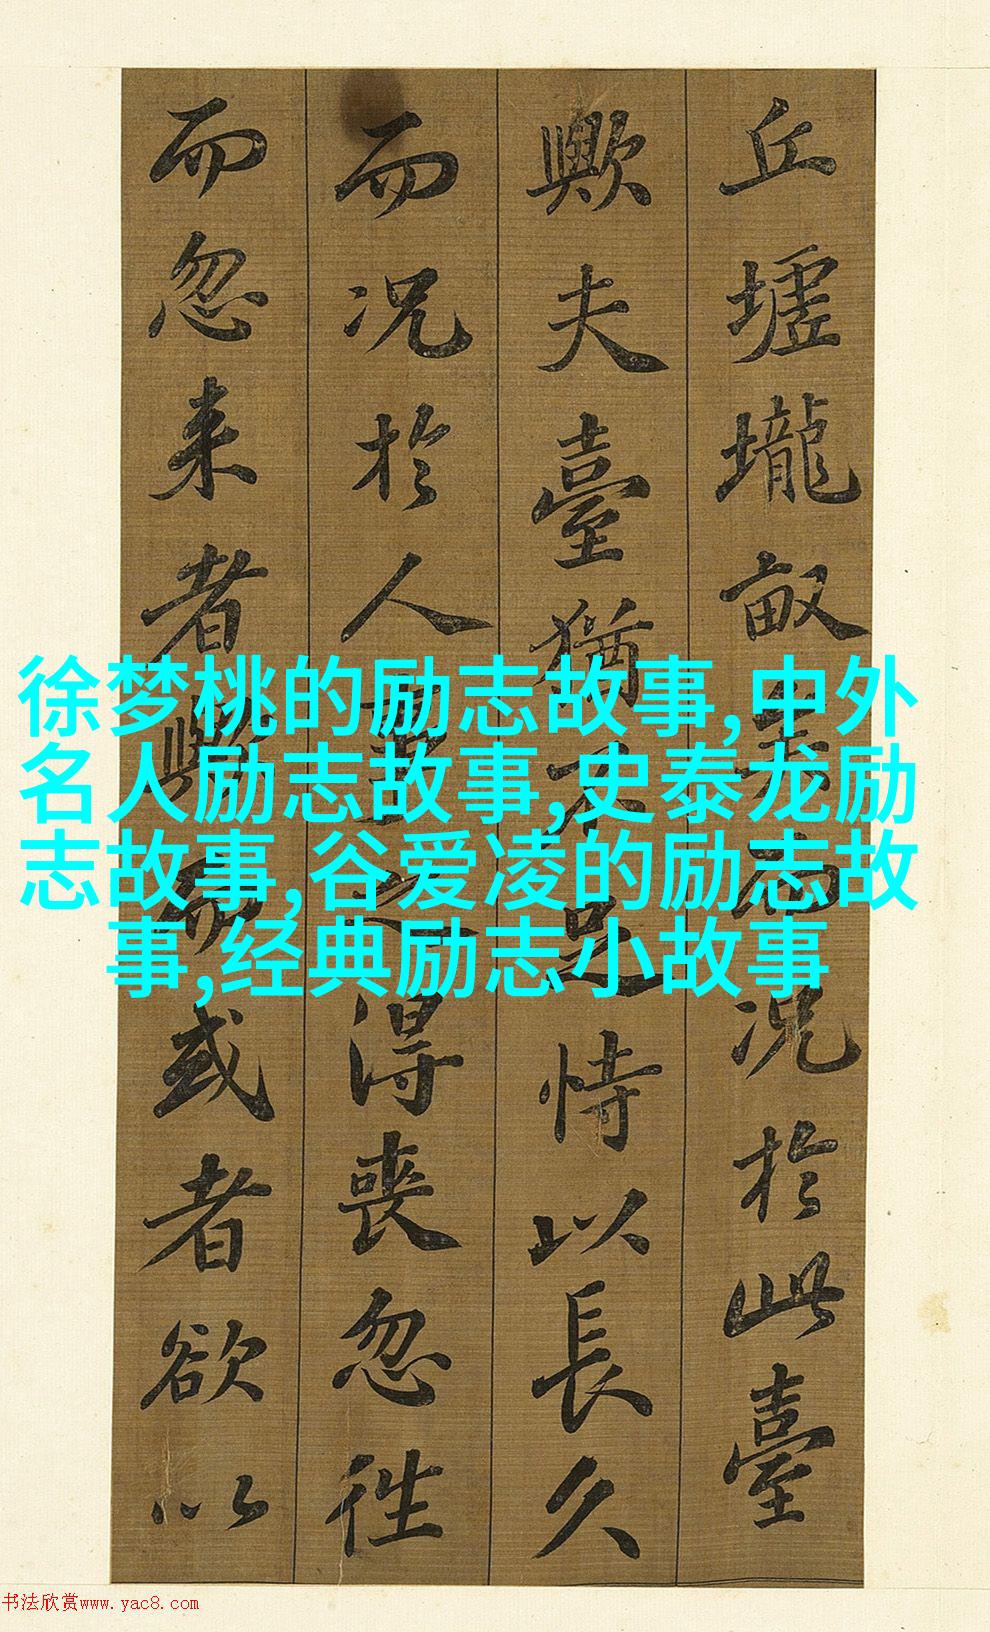 丘墟壠畝矣而况於此臺
歟夫臺猶不足恃以長久
而况於人事之得喪忽往
而忽来者歟而或者欲以
徐梦桃的励志故事,中外
名人励志故事,史泰龙励
志故事,谷爱凌的励志故
事,经典励志小故事
书法欣赏www.yac8.com